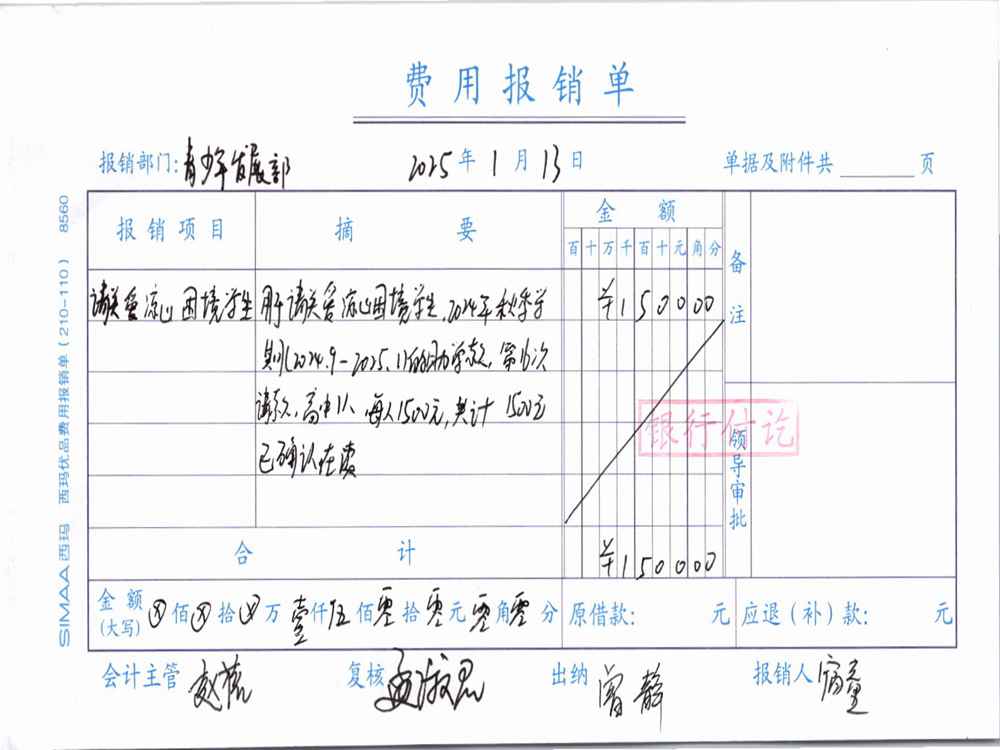 费用报销单
报销部门: 青少年发展部 2025年1月13日 单据及附件共 页
报销项目 摘要 金额 备注
百十万千百十元角分
请关爱凉山困境学生 用于请关爱凉山困境学生,2024年秋季学 ¥150000
期(2024.9-2025.1)的助学款,第 次
请款,高中1人,每人1500元,共计1500元
已确认在读
银行付讫
领导审批
合计 ¥150000
金额(大写) ⊗佰⊗拾⊗万壹仟伍佰零拾零元零角零分 原借款: 元 应退(补)款: 元
会计主管 复核 出纳 曾静 报销人
SIMAA西玛 西玛优品费用报销单(210-110) 8560